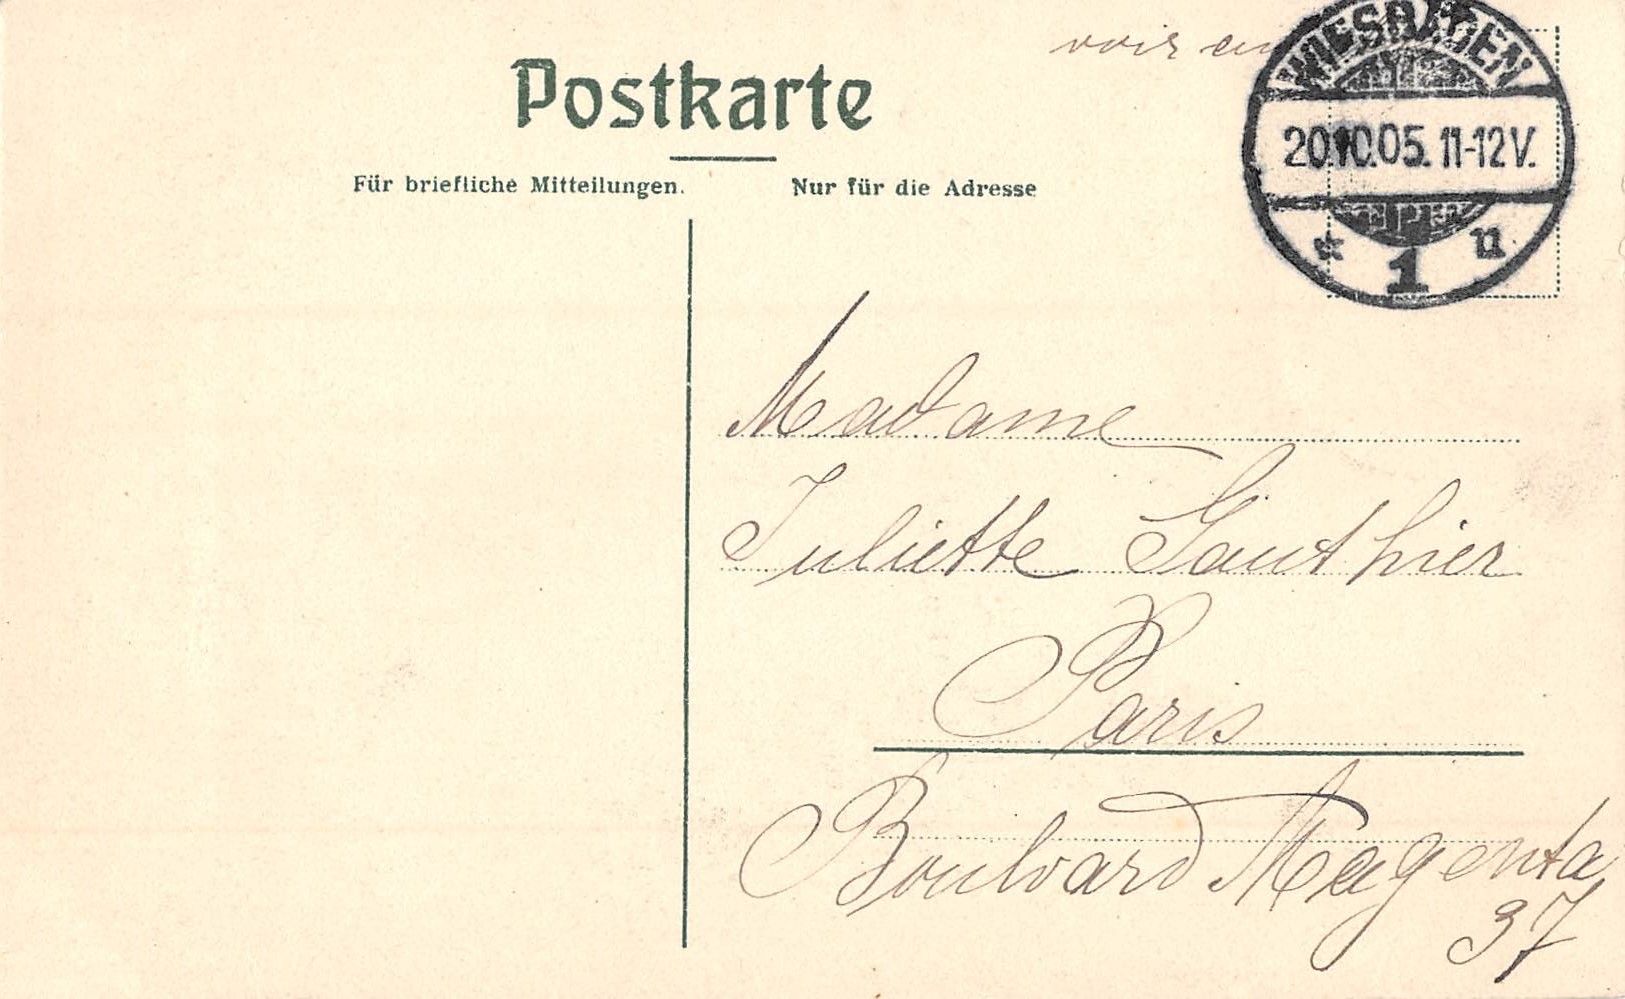 Postkarte
Für briefliche Mitteilungen.
Nur für die Adresse
voir
WIESBADEN
20.10.05. 11-12V.
* 1 u
Madame
Juliette Gauthier
Paris
Boulvard Magenta
37